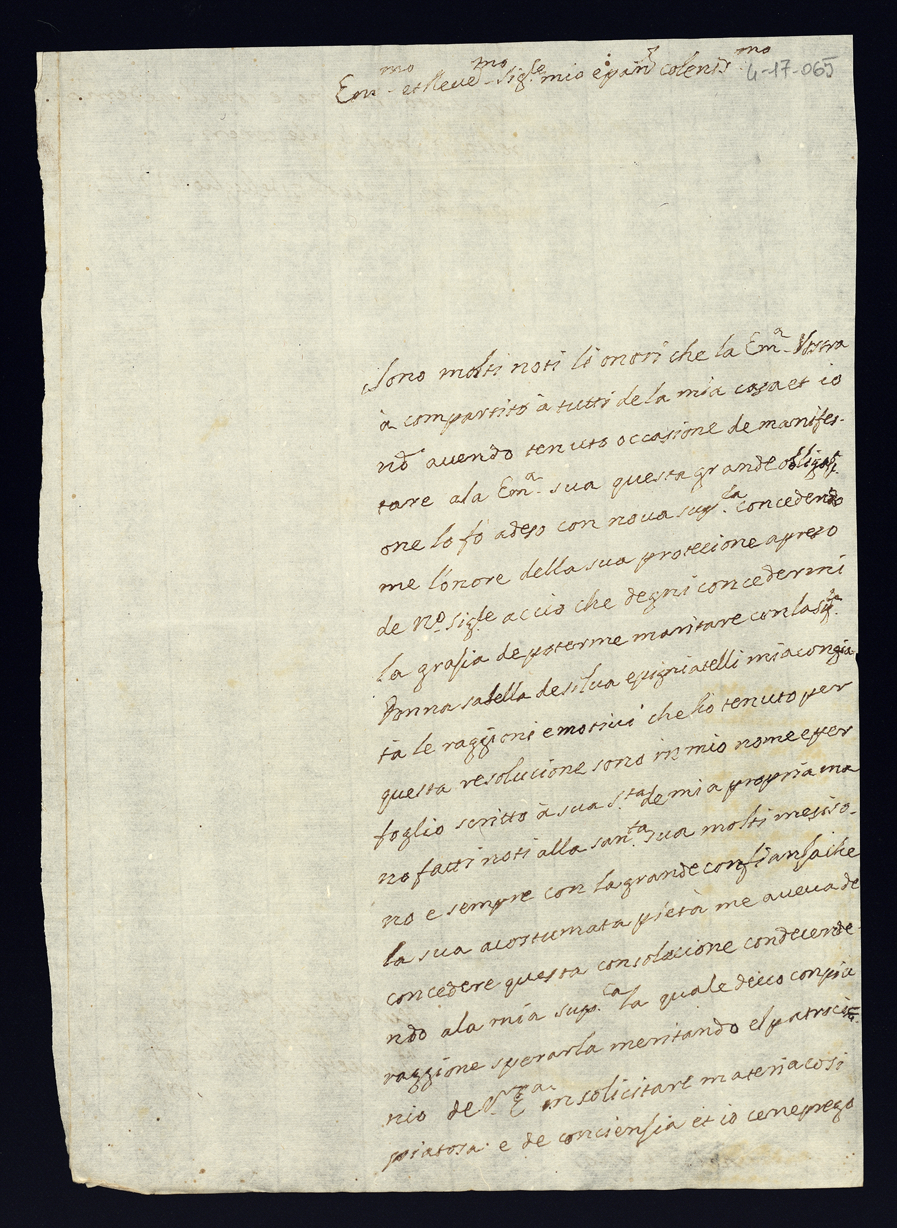 Em.mo et Reve.mo Sig.le mio e pan.e colenis.mo
4-17-065
Sono molti noti li onori che la Em.a Vostra
à compartito à tutti de la mia casa et io
nō avendo tenuto occasione de manifes-
tare ala Em.a sua questa grande obligati-
one lo fò adeso con nova sup.la concedendo
me l'onore della sua protecione apreso
de N.o Sig.le acciò che degni concedermi
la grasia de poterme maritare con la sig.la
Donna sabella de silva e pigniatelli mia congia-
ta le raggioni e motivi che hò tenuto per
questa resolucione sono in mio nome e per
foglio scritto à sua S.ta de mia propria ma
no fatti noti alla san.ta sua molti mesi so-
no e sempre con la grande confiansa che
la sua acostumata pietà me aveva de
concedere questa consolacione condecende-
ndo ala mia sup.ca la quale devo con più
raggione sperarla meritando el patroci-
nio de V.ra E.a in solicitare materia cosi
piatosa e de conciensia et io ce ne prego